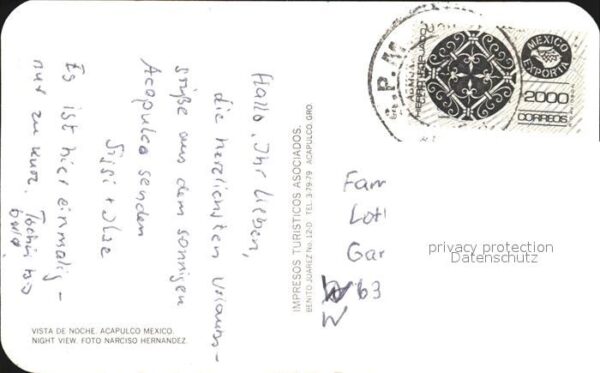 Hallo, Ihr Lieben,
die herzlichsten Urlaubs-
grüße aus dem sonnigen
Acapulco senden
Sigi + Ilse
Es ist hier einmalig -
nur zu kurz. Tschüß
bald
VISTA DE NOCHE. ACAPULCO MEXICO.
NIGHT VIEW. FOTO NARCISO HERNANDEZ
IMPRESOS TURISTICOS ASOCIADOS.
BENITO JUAREZ No. 12-D TEL. 3-79-79 ACAPULCO, GRO
MEXICO
EXPORTA
2000
CORREOS
HIERRO FORJADO
S.P.M.
Fam
Lot
Gar
63
privacy protection
Datenschutz